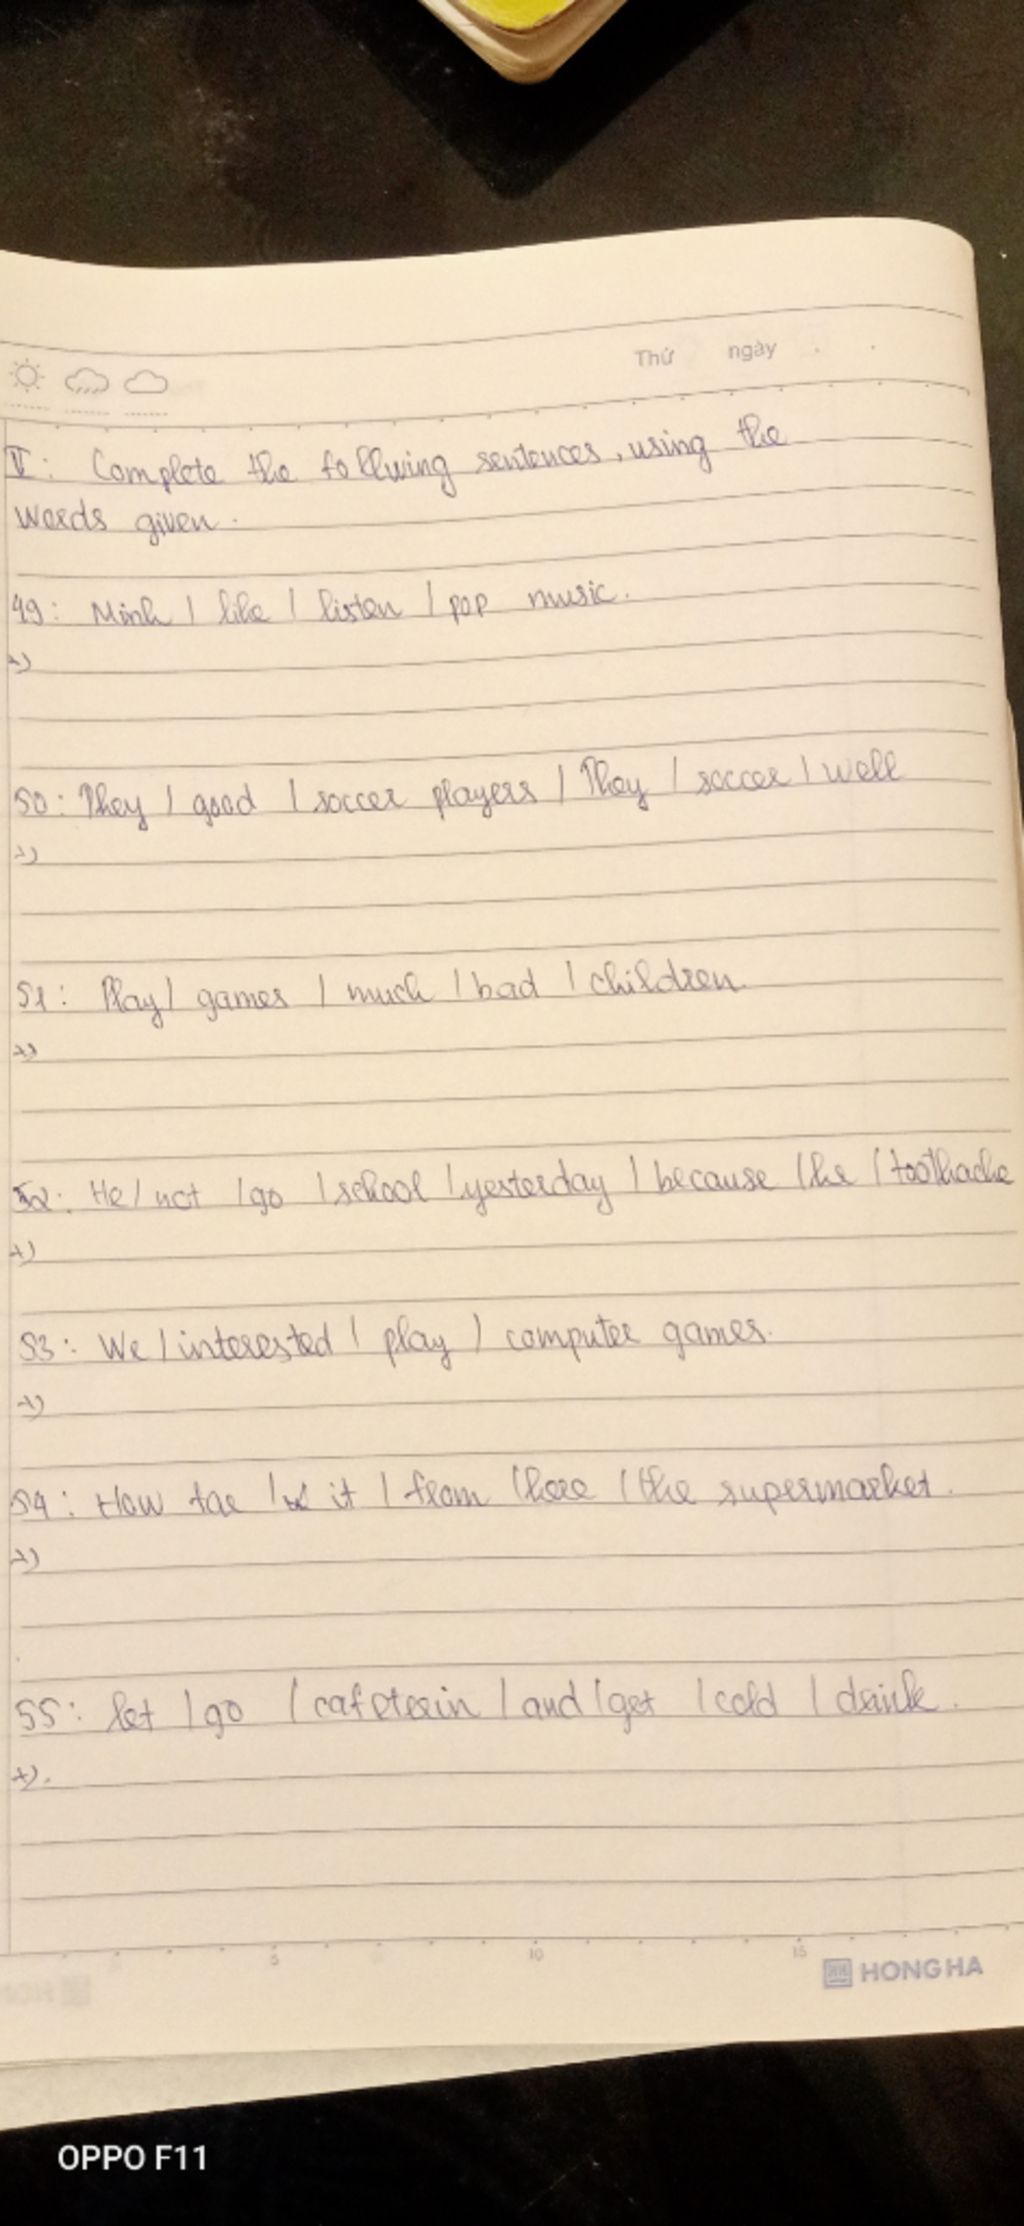 Thứ ngày
V: Complete the follwing sentences, using the
words given.
49: Minh / like / listen / pop music.
=>
50: They / good / soccer players / They / soccer / well
=>
51: Play / games / much / bad / children.
=>
52: He / not / go / school / yesterday / because / he / toothache
=>
53: We / interested / play / computer games.
=>
54: How far / it / from / here / the supermarket.
=>
55: let / go / cafeteria / and / get / cold / drink.
=>.
5 10 15
HONG HA
OPPO F11